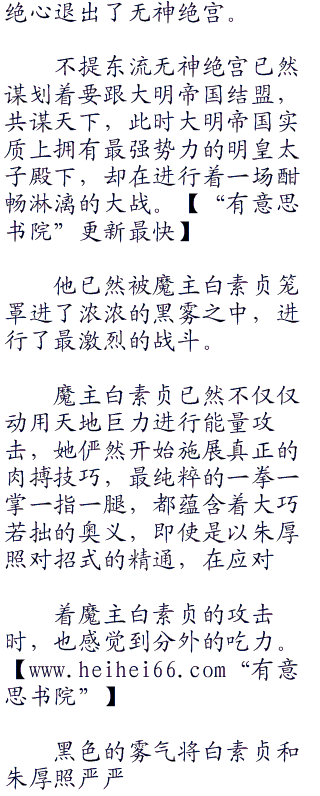 绝心退出了无神绝宫。
不提东流无神绝宫已然
谋划着要跟大明帝国结盟，
共谋天下，此时大明帝国实
质上拥有最强势力的明皇太
子殿下，却在进行着一场酣
畅淋漓的大战。【“有意思
书院”更新最快】
他已然被魔主白素贞笼
罩进了浓浓的黑雾之中，进
行了最激烈的战斗。
魔主白素贞已然不仅仅
动用天地巨力进行能量攻
击，她俨然开始施展真正的
肉搏技巧，最纯粹的一拳一
掌一指一腿，都蕴含着大巧
若拙的奥义，即使是以朱厚
照对招式的精通，在应对
着魔主白素贞的攻击
时，也感觉到分外的吃力。
【www.heihei66.com“有意
思书院”】
黑色的雾气将白素贞和
朱厚照严严